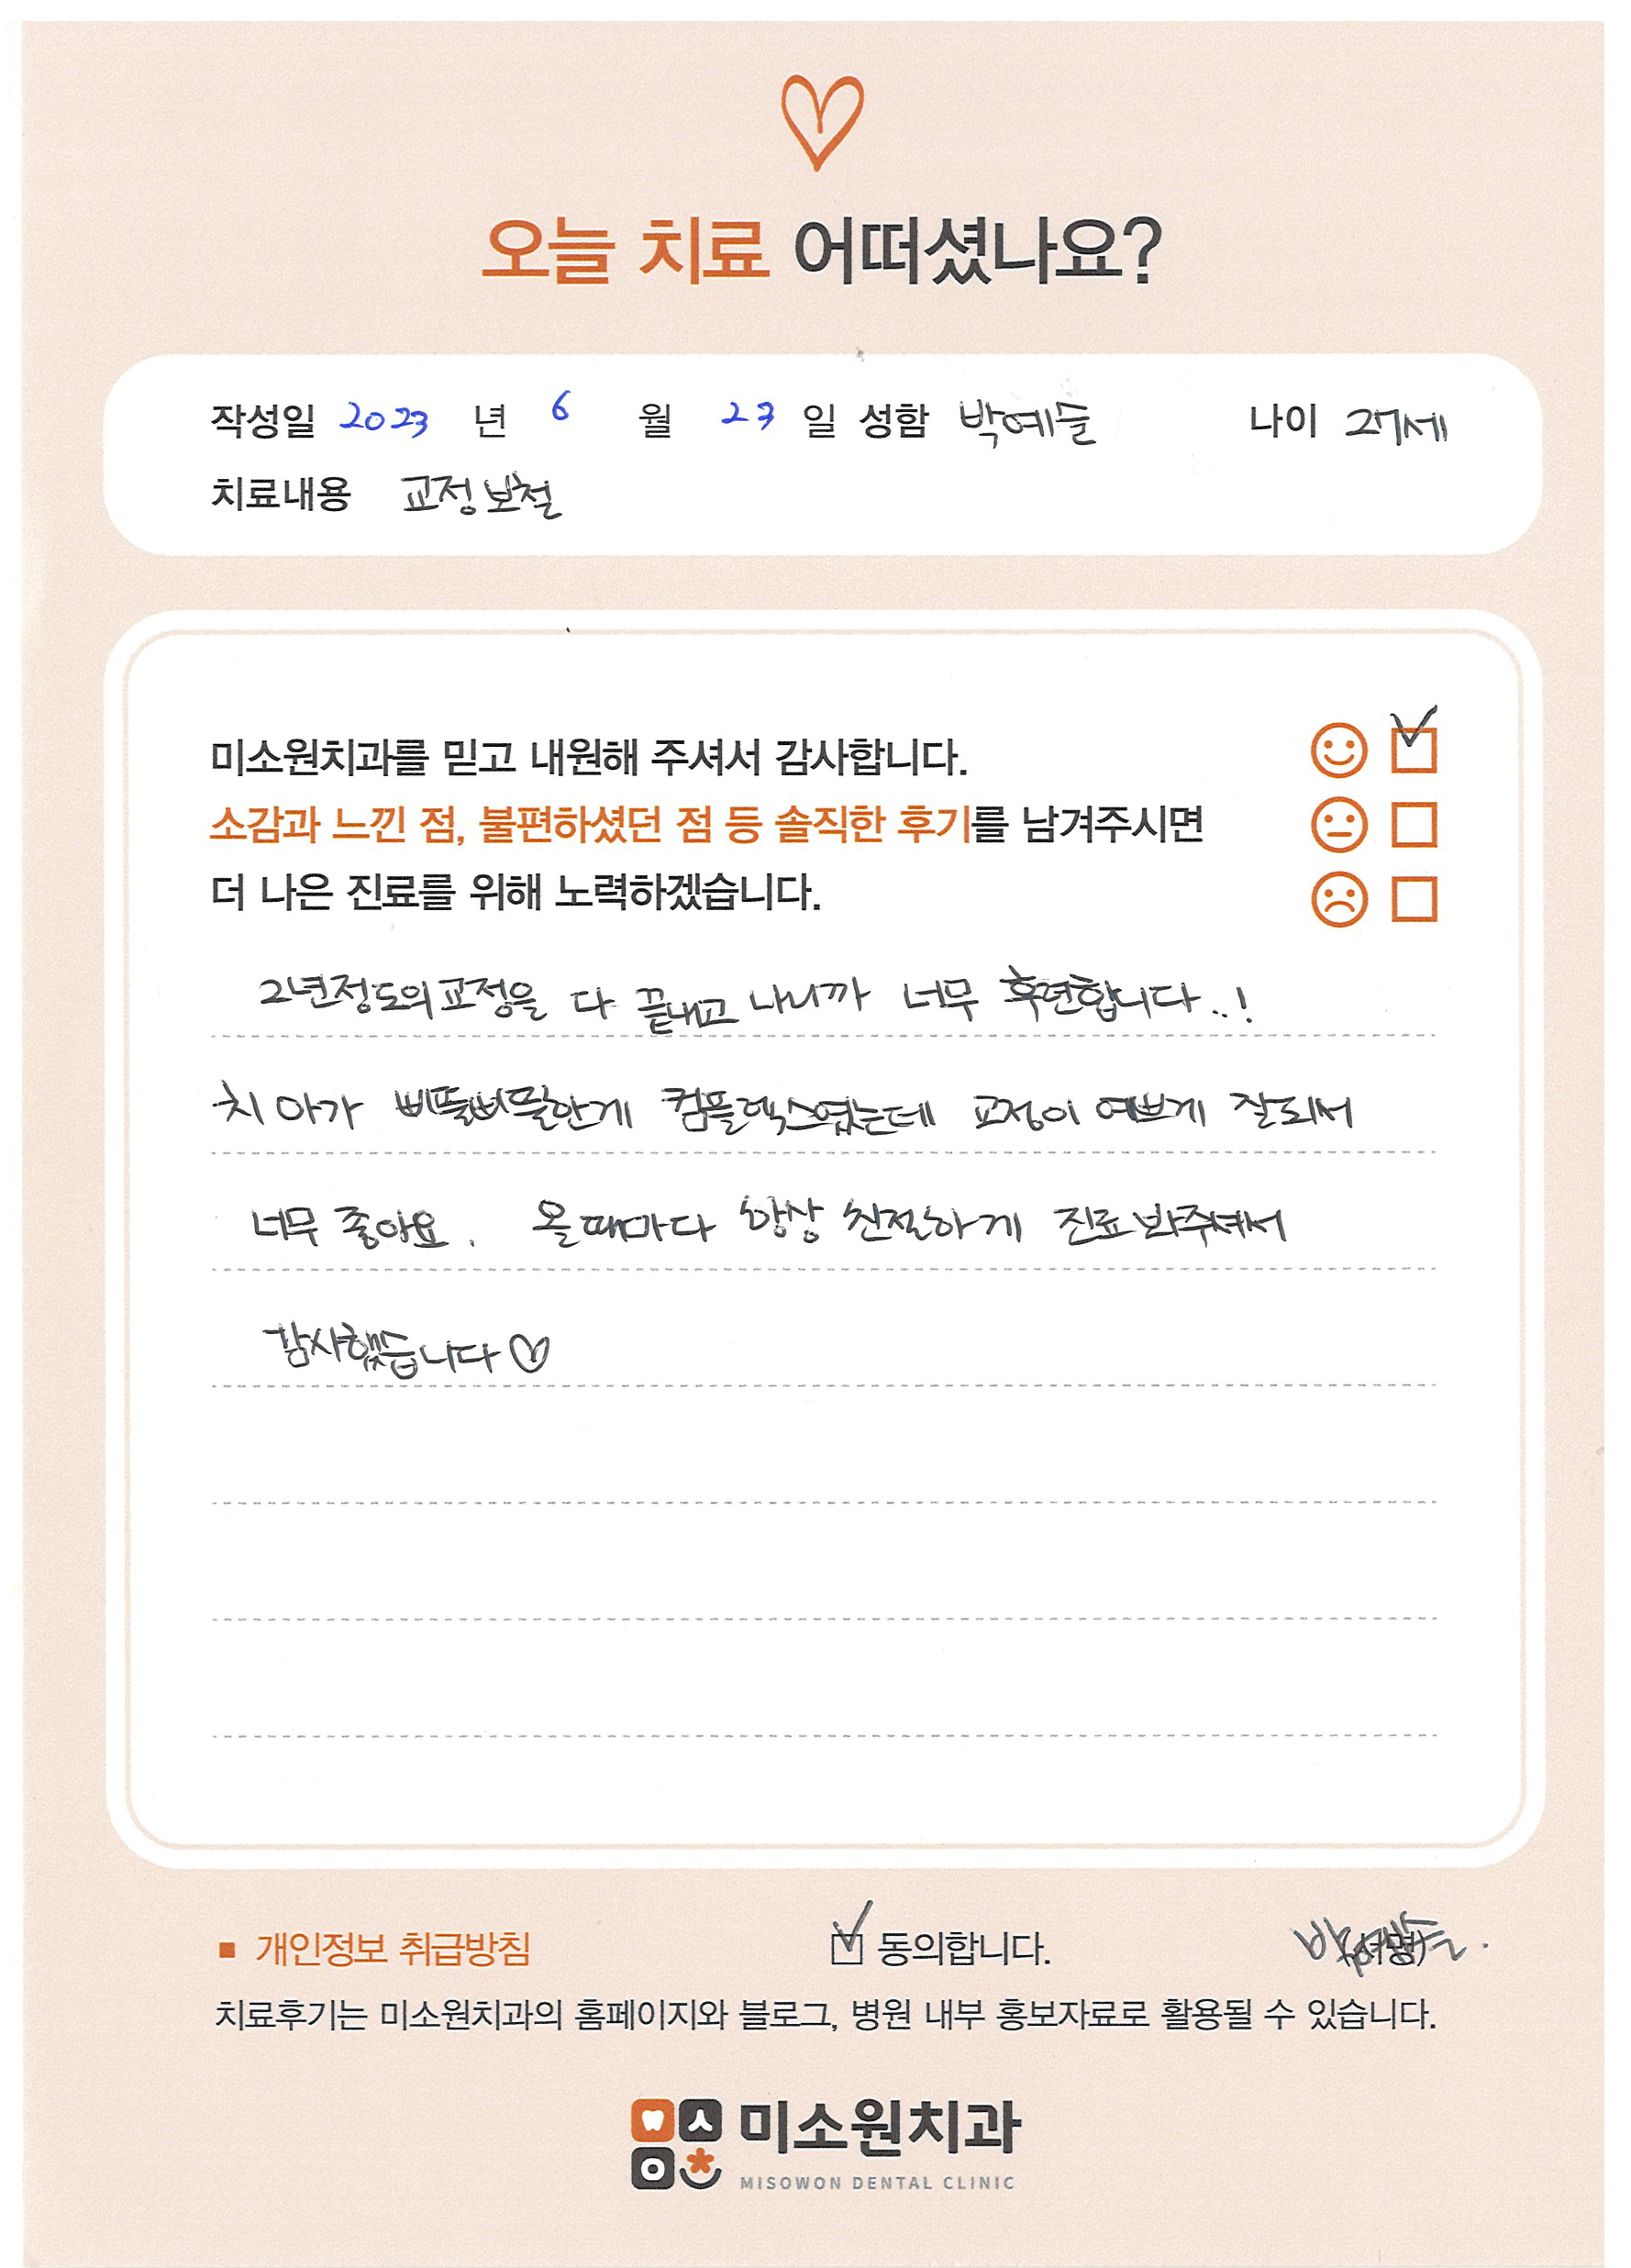 오늘 치료 어떠셨나요?
작성일 2023 년 6 월 23 일 성함 박예슬 나이 27세
치료내용 교정 보철
미소원치과를 믿고 내원해 주셔서 감사합니다.
소감과 느낀 점, 불편하셨던 점 등 솔직한 후기를 남겨주시면
더 나은 진료를 위해 노력하겠습니다.
2년정도의 교정을 다 끝내고 나니까 너무 후련합니다..!
치아가 삐뚤삐뚤한게 컴플렉스였는데 교정이 예쁘게 잘되서
너무 좋아요. 올때마다 항상 친절하게 진료봐주셔서
감사했습니다♡
■ 개인정보 취급방침 동의합니다. 박예슬 (서명)
치료후기는 미소원치과의 홈페이지와 블로그, 병원 내부 홍보자료로 활용될 수 있습니다.
미소원치과
MISOWON DENTAL CLINIC